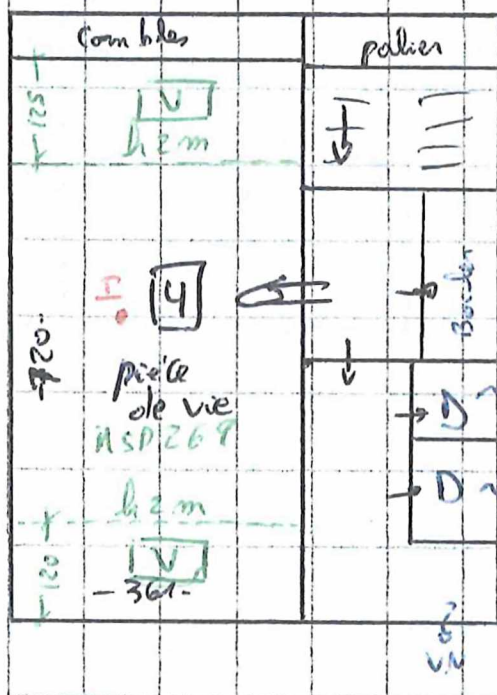 Combles
palier
125
V
h 2 m
4
Boiler
720
pièce
de vie
HSP 269
D
D
h 2 m
120
V
- 361 -